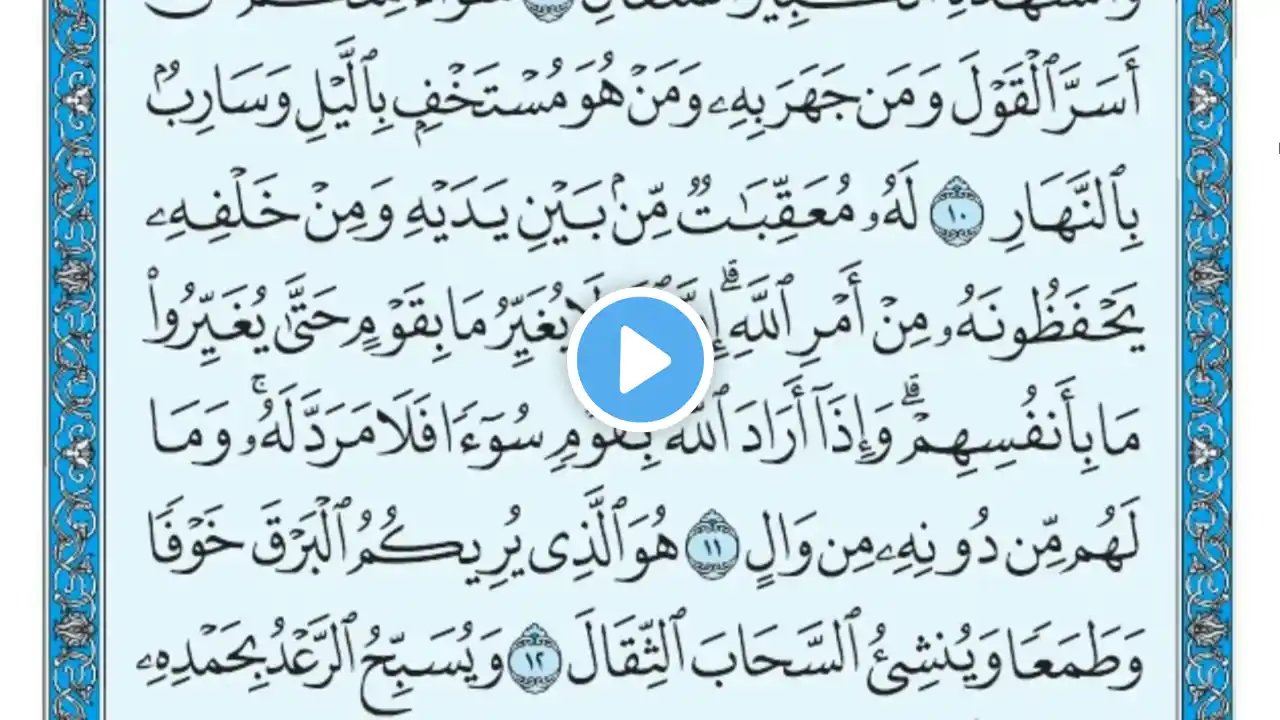 أَسَرَّ ٱلْقَوْلَ وَمَن جَهَرَ بِهِۦ وَمَنْ هُوَ مُسْتَخْفٍۭ بِٱلَّيْلِ وَسَارِبٌۢ
بِٱلنَّهَارِ ١٠ لَهُۥ مُعَقِّبَـٰتٌ مِّنۢ بَيْنِ يَدَيْهِ وَمِنْ خَلْفِهِۦ
يَحْفَظُونَهُۥ مِنْ أَمْرِ ٱللَّهِۗ لَا يُغَيِّرُ مَا بِقَوْمٍ حَتَّىٰ يُغَيِّرُوا۟
مَا بِأَنفُسِهِمْۗ وَإِذَآ أَرَادَ ٱللَّهُ بِقَوْمٍ سُوٓءًا فَلَا مَرَدَّ لَهُۥۚ وَمَا
لَهُم مِّن دُونِهِۦ مِن وَالٍ ١١ هُوَ ٱلَّذِى يُرِيكُمُ ٱلْبَرْقَ خَوْفًا
وَطَمَعًا وَيُنشِئُ ٱلسَّحَابَ ٱلثِّقَالَ ١٢ وَيُسَبِّحُ ٱلرَّعْدُ بِحَمْدِهِۦ